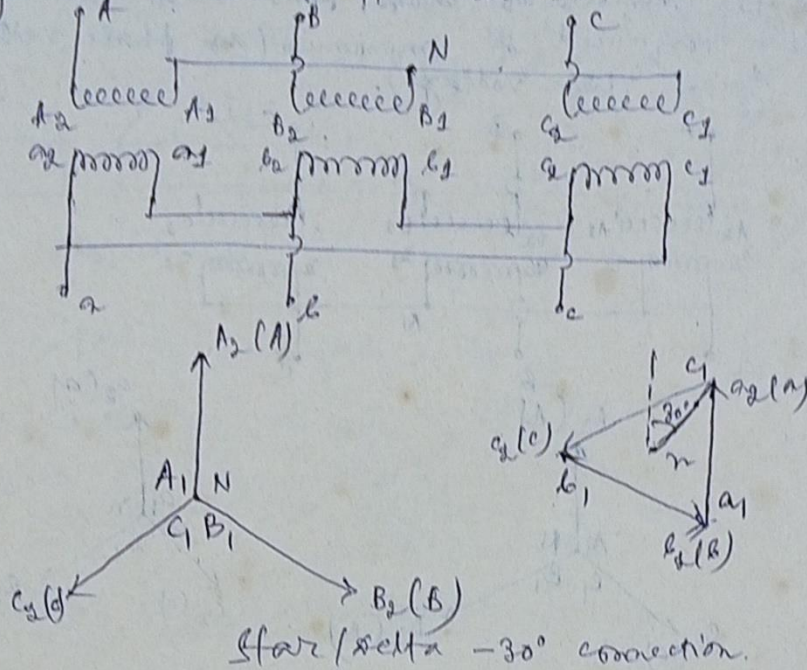 A B C
N
A2 A1 B2 B1 C2 C1
a2 a1 b2 b1 c2 c1
a b c
A2 (A)
A1 N
C1 B1
C2 (C) B2 (B)
c1 a2 (a)
30°
c2 (C) n
b1 a1
b2 (B)
Star/delta -30° connection.